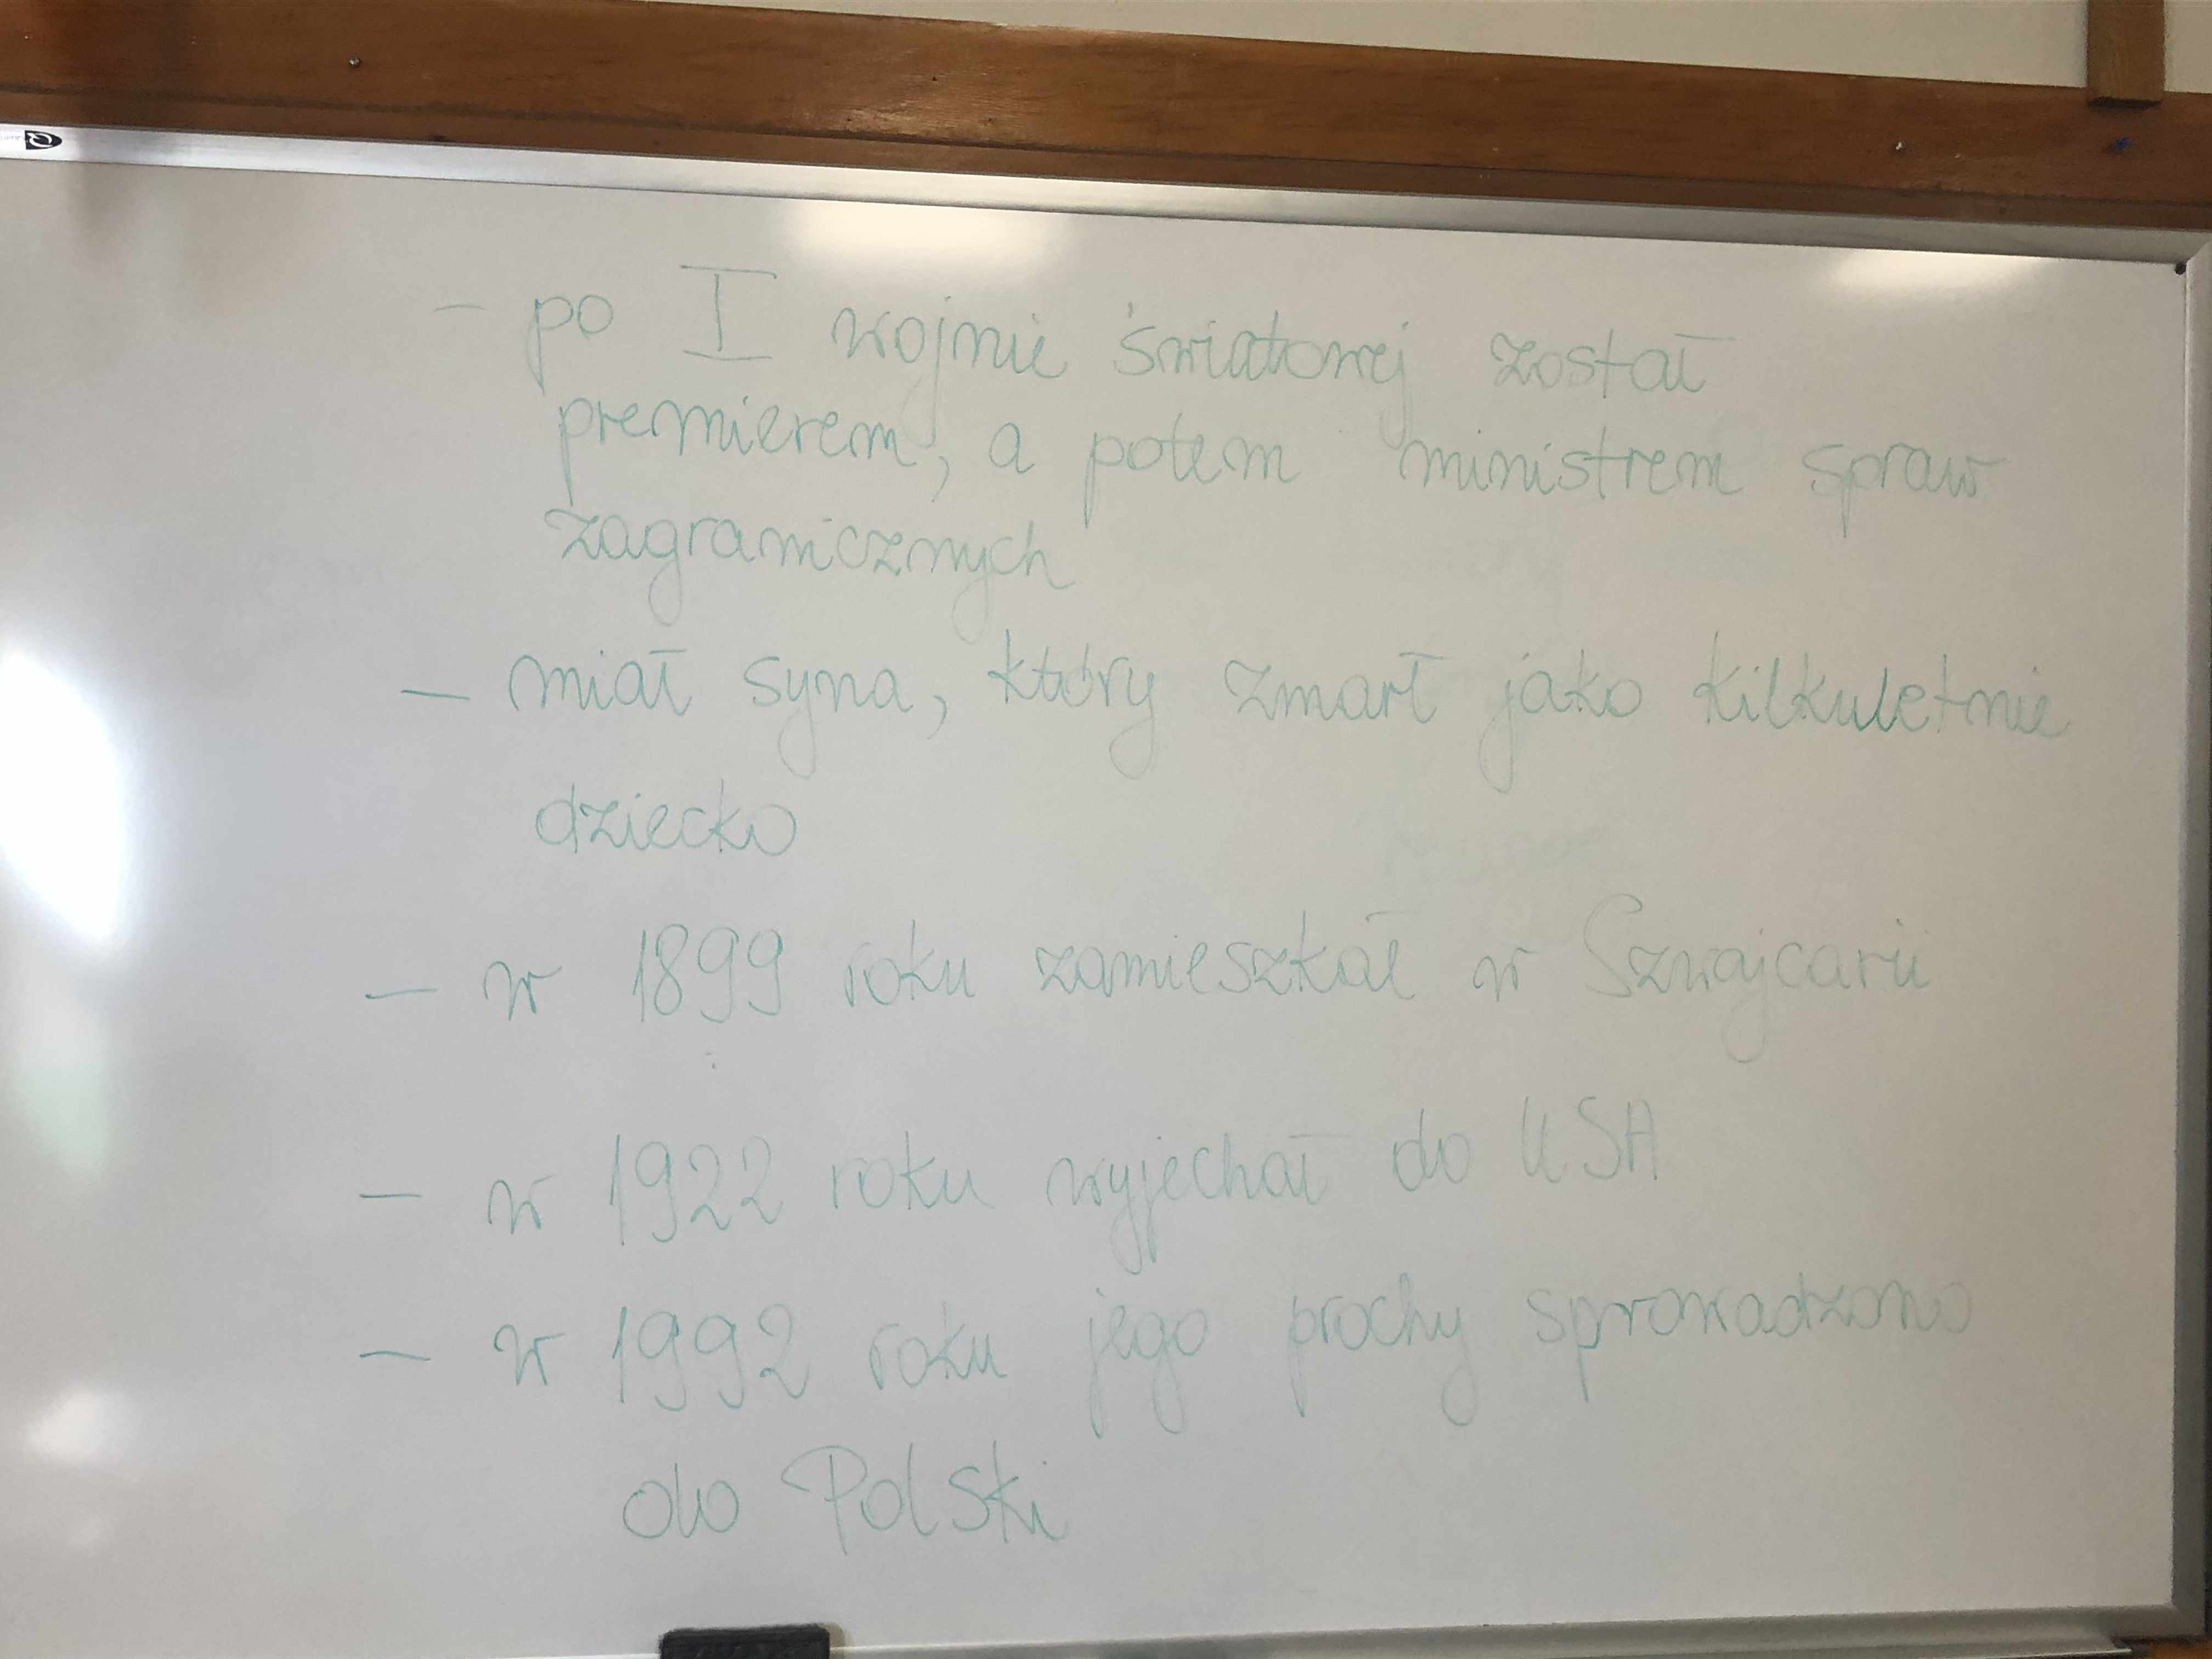 - po I wojnie światowej został
premierem, a potem ministrem spraw
zagranicznych
- miał syna, który zmarł jako kilkuletnie
dziecko
- w 1899 roku zamieszkał w Szwajcarii
- w 1922 roku wyjechał do USA
- w 1992 roku jego prochy sprowadzono
do Polski